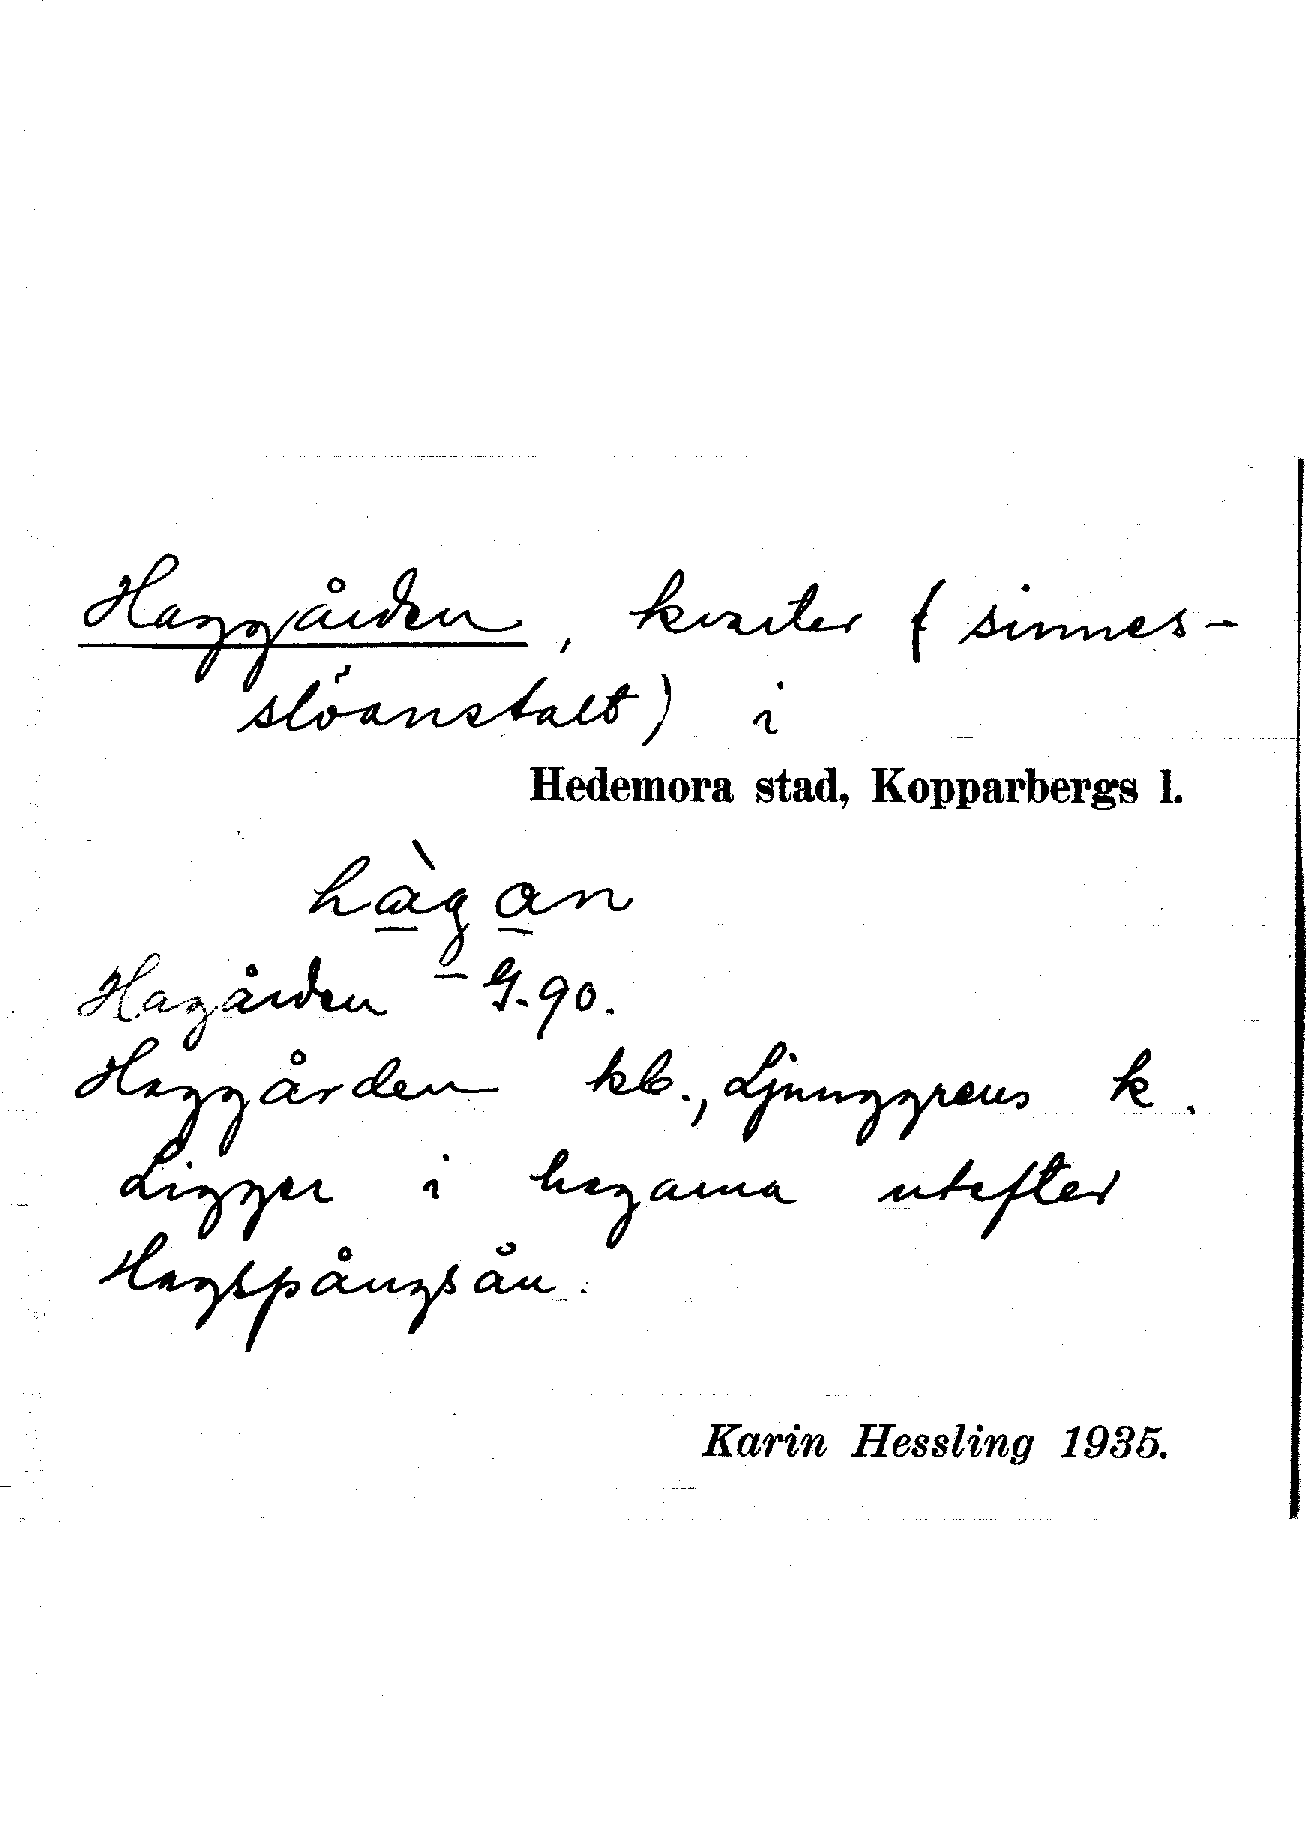 Haggården, kvarter (sinnes-
slöanstalt) i
Hedemora stad, Kopparbergs l.
hàgan
Hagården G-90.
Haggården kb., Ljunggrens k.
Ligger i hagarna utefter
Hagspångsån.
Karin Hessling 1935.